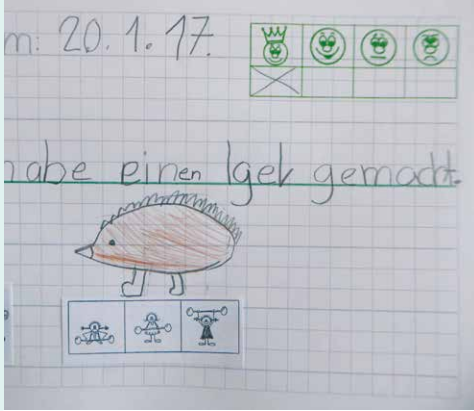 m: 20.1.17.
habe einen Igel gemacht.